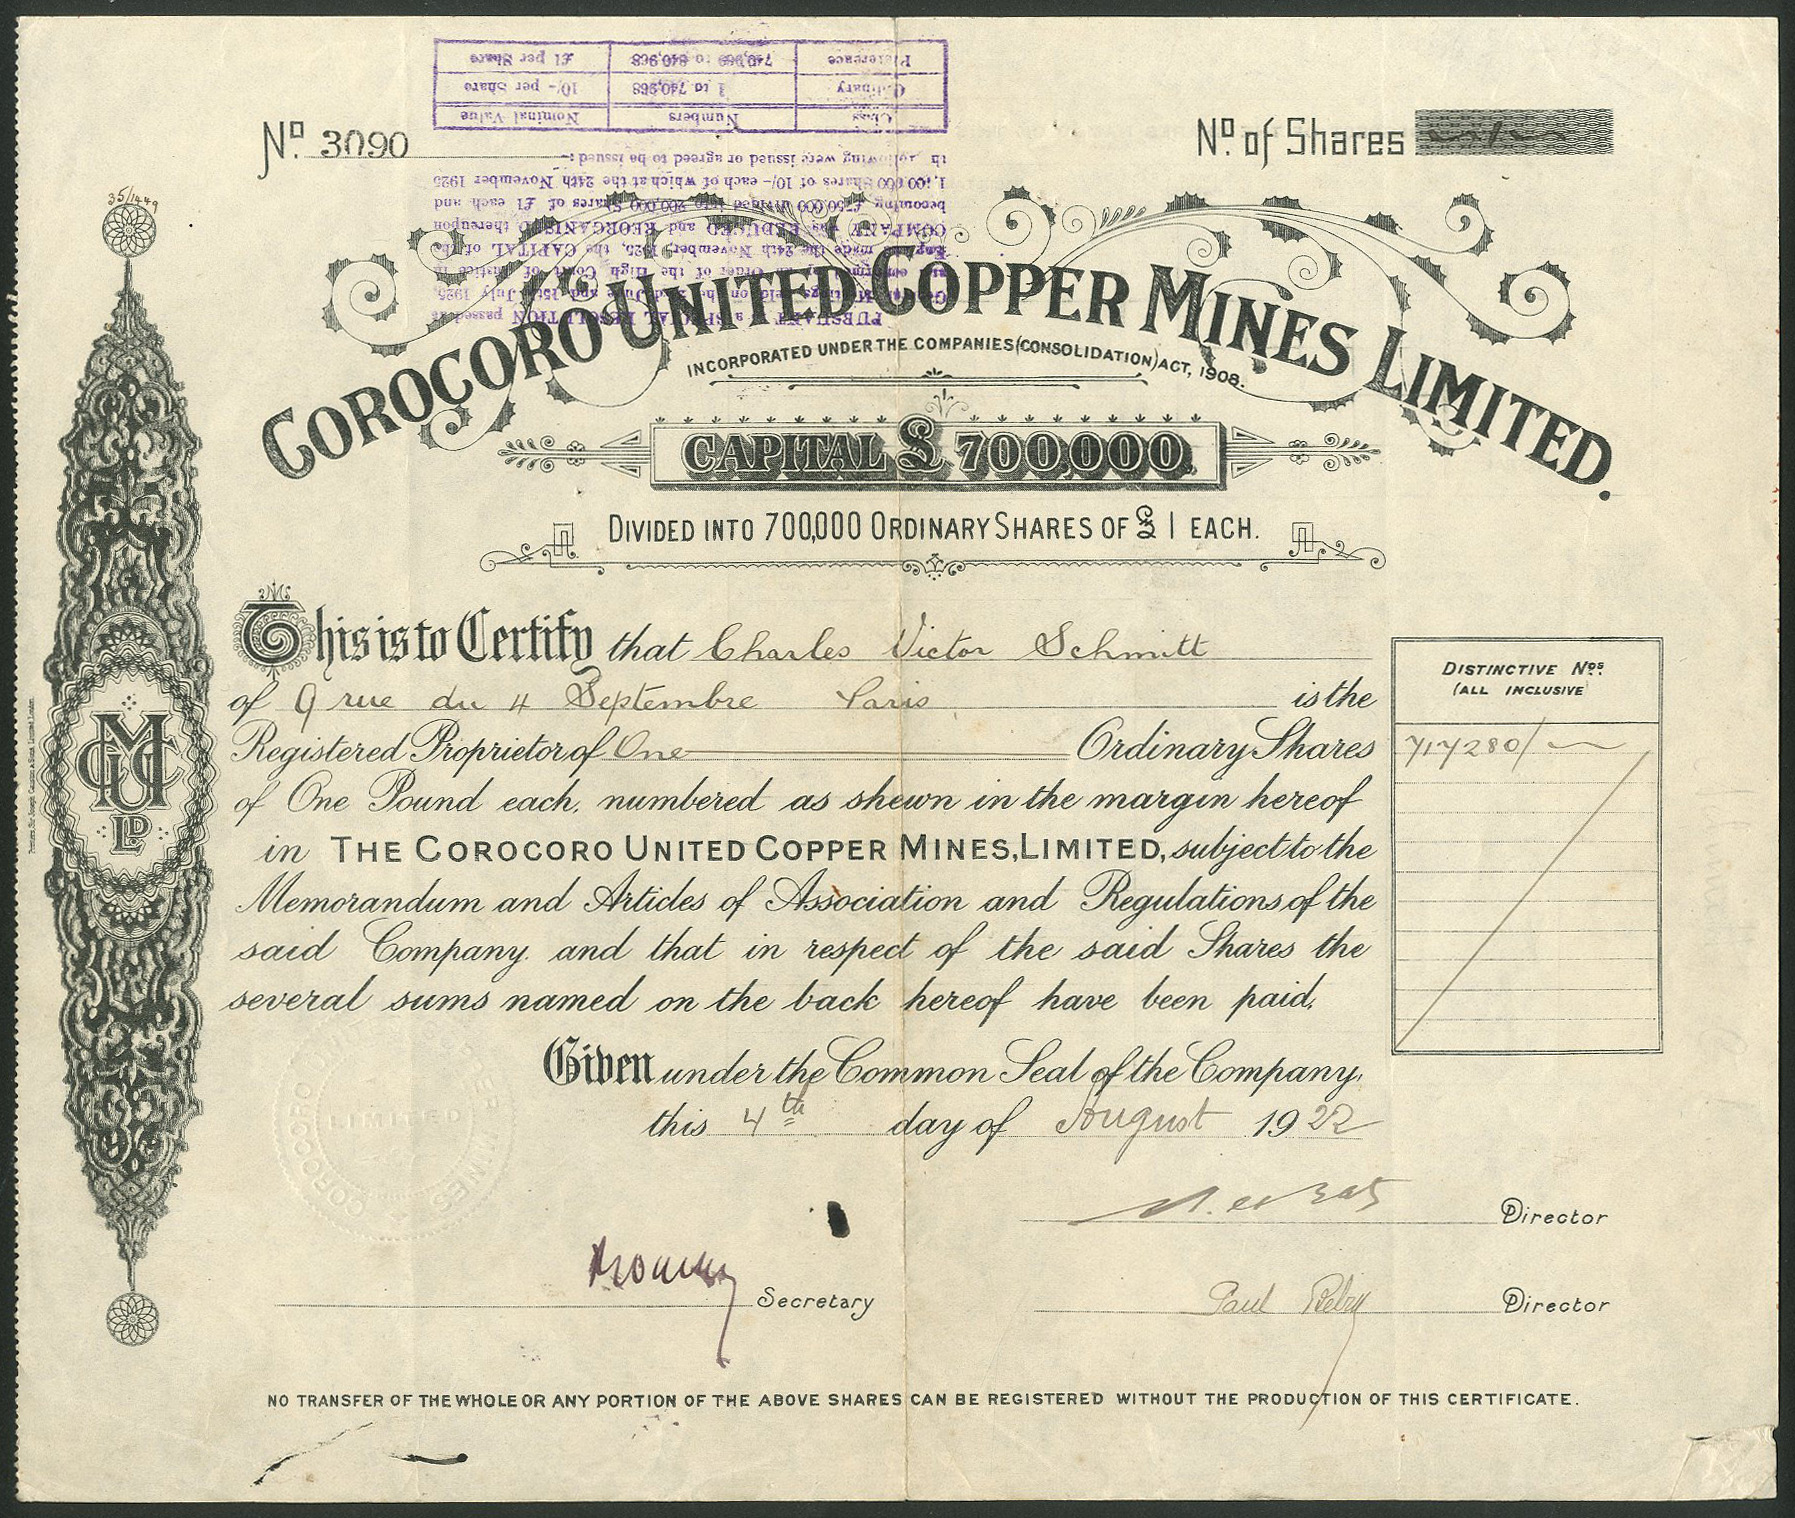 Nº. 3090
Nº. of Shares
35/1449
THE COROCORO UNITED COPPER MINES LIMITED.
INCORPORATED UNDER THE COMPANIES (CONSOLIDATION) ACT, 1908.
CAPITAL £ 700,000.
DIVIDED INTO 700,000 ORDINARY SHARES OF £ 1 EACH.
This is to Certify that Charles Victor Schmitt
of 9 rue du 4 Septembre Paris is the
Registered Proprietor of One Ordinary Shares
of One Pound each, numbered as shewn in the margin hereof
in THE COROCORO UNITED COPPER MINES, LIMITED, subject to the
Memorandum and Articles of Association and Regulations of the
said Company and that in respect of the said Shares the
several sums named on the back hereof have been paid.
DISTINCTIVE Nºs.
(ALL INCLUSIVE)
717280/
Given under the Common Seal of the Company,
this 4th day of August 1922
Director
Secretary
Paul Director
NO TRANSFER OF THE WHOLE OR ANY PORTION OF THE ABOVE SHARES CAN BE REGISTERED WITHOUT THE PRODUCTION OF THIS CERTIFICATE.
CUCM
LD
COROCORO MINES
LIMITED
PURSUANT to a SPECIAL RESOLUTION passed at
General Meetings held on the 23rd June and 15th July 1925,
and confirmed by an Order of the High Court of Justice in
England made the 24th November 1925, the CAPITAL of the
COMPANY was REDUCED and REORGANISED thereupon
becoming £750,000 divided into 200,000 Shares of £1 each and
1,100,000 Shares of 10/- each of which at the 24th November 1925
the following were issued or agreed to be issued:-
Class Numbers Nominal Value
Ordinary 1 to 740,968 10/- per Share
Preference 740,969 to 840,968 £1 per Share